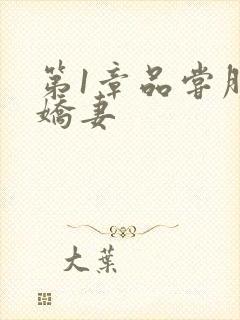 第1章品尝
娇妻
大叶